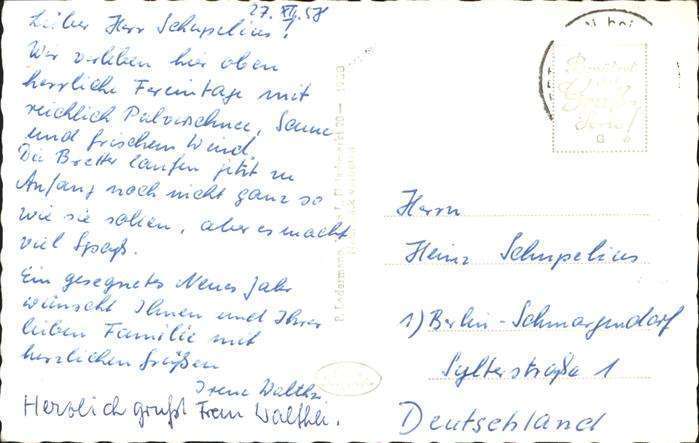 27. XII. 58
Lieber Herr Schupelius!
Wir verleben hier oben
herrliche Ferientage mit
reichlich Pulverschnee, Sonne
und frischem Wind.
Die Bretter laufen jetzt zu
Anfang noch nicht ganz so
wie sie sollen, aber es macht
viel Spaß.
Ein gesegnetes Neues Jahr
wünscht Ihnen und Ihrer
lieben Familie mit
herzlichen Grüßen
Irene
Herzlich grüßt Frau
Herrn
Heinz Schupelius
1) Berlin-Schmargendorf
Sylterstraße 1
Deutschland